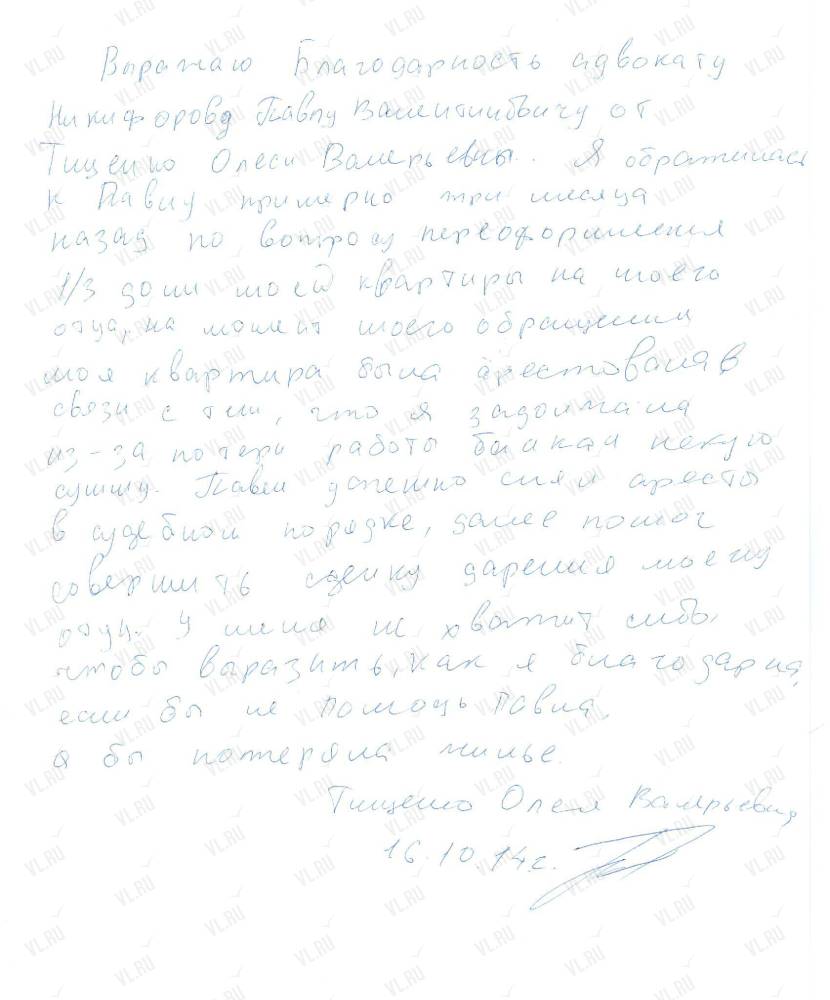 Выражаю Благодарность адвокату
Никифорову Павлу Валентиновичу от
Тищенко Олеси Валерьевны. Я обращалась
к Павлу примерно три месяца
назад по вопросу переоформления
1/3 доли моей квартиры на моего
отца, на момент моего обращения
моя квартира была арестована в
связи с тем, что я задолжала
из-за потери работы банкам некую
сумму. Павел успешно снял аресты
в судебном порядке, далее помог
совершить сделку дарения моему
отцу. У меня не хватит слов,
чтобы выразить, как я благодарна,
если бы не помощь Павла,
я бы потеряла жилье.
Тищенко Олеся Валерьевна
16.10.14г.
VL.RU